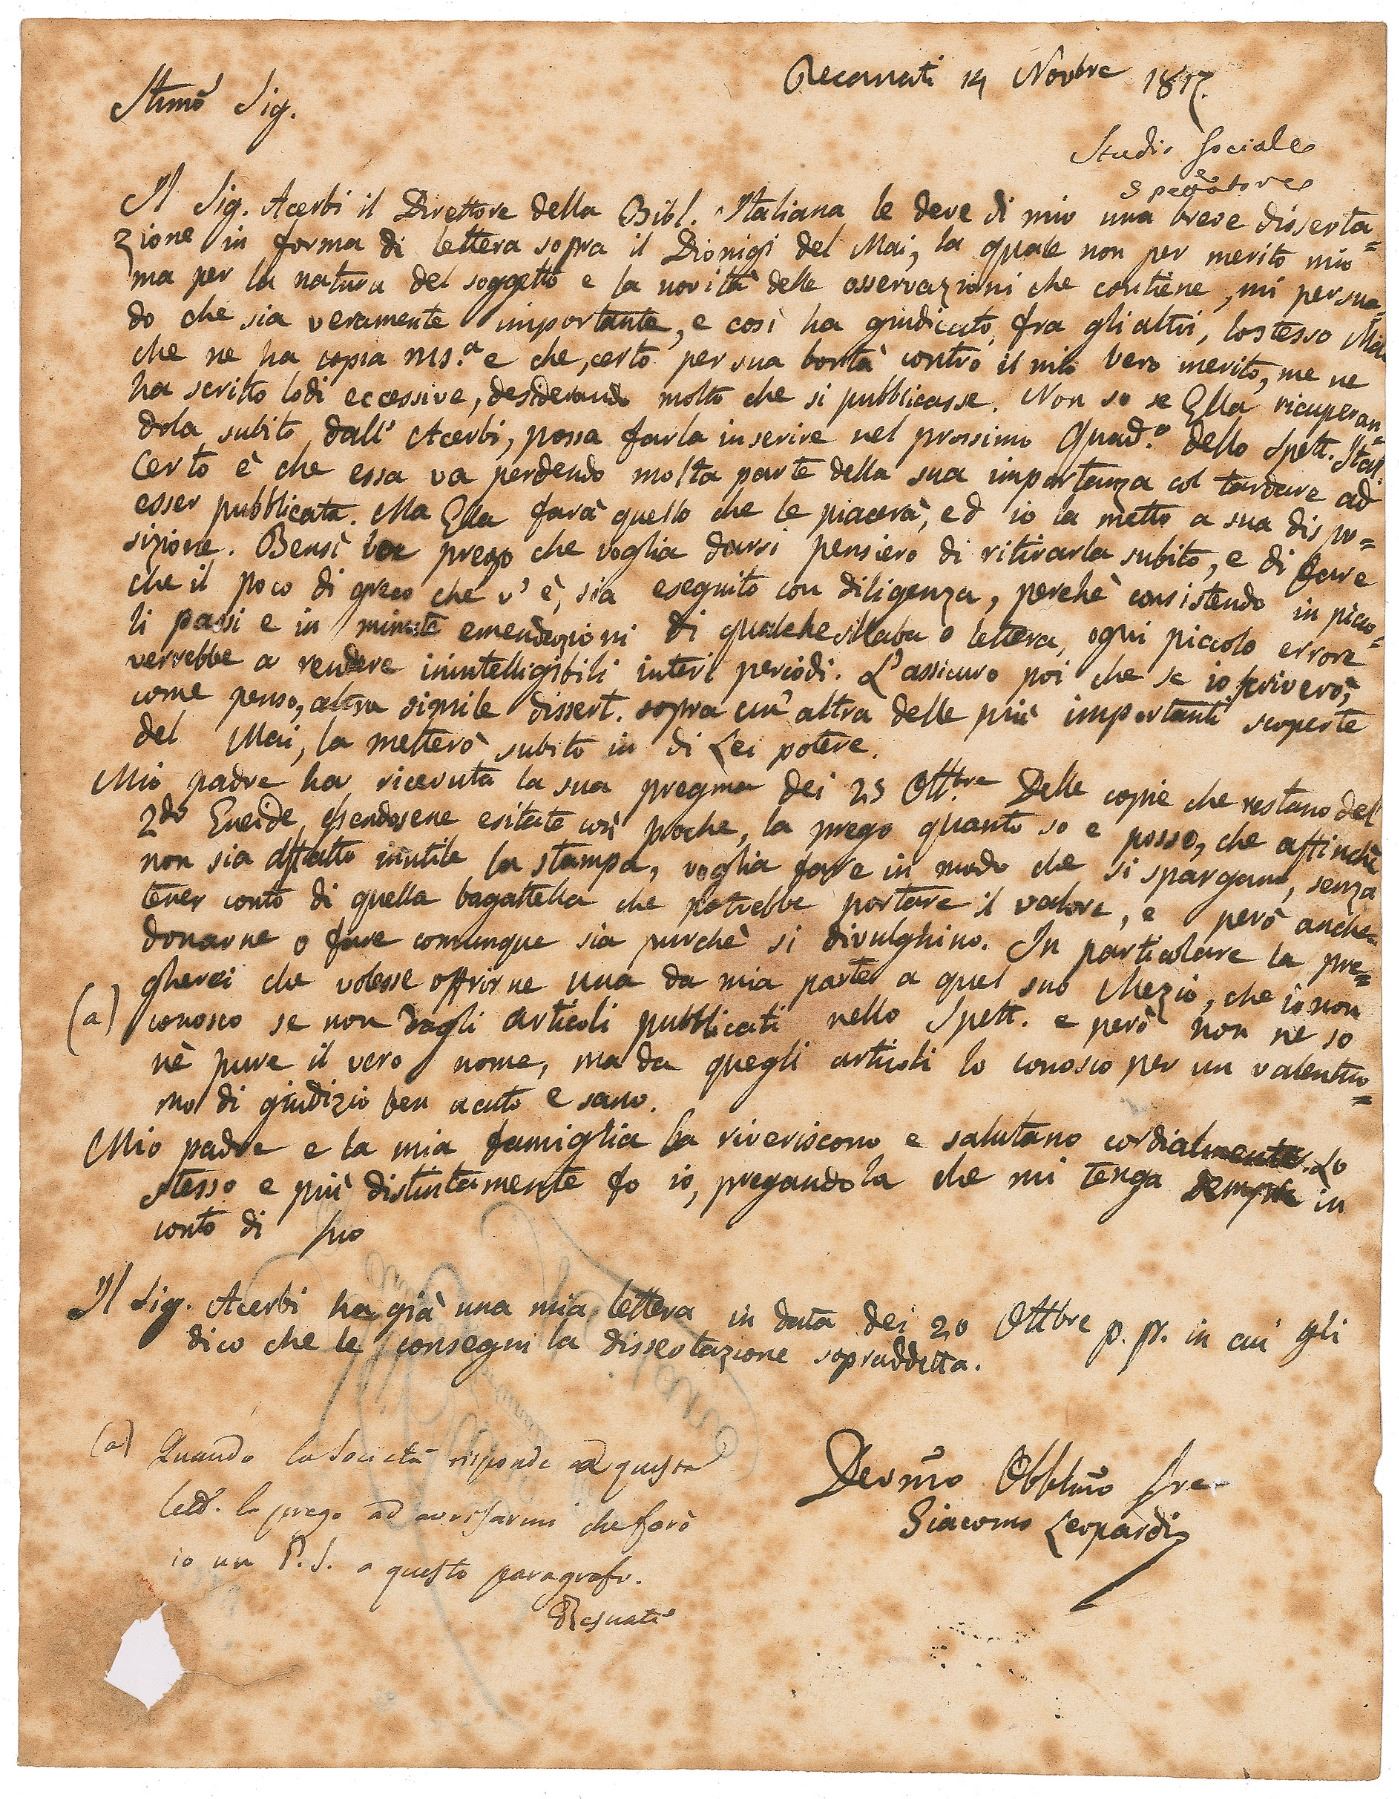 Recanati 14 Novbre 1817.
Stimo Sig.
Studio Sociale
Spettatore
Il Sig. Acerbi il Direttore della Bibl. Italiana le deve di mio una breve disserta=
zione in forma di lettera sopra il Dionigi del Mai, la quale non per merito mio
ma per la natura del soggetto e la novità delle osservazioni che contiene, mi persua=
do che sia veramente importante, e così ha giudicato, fra gli altri, lo stesso Mai
che ne ha copia ms.a e che, certo per sua bontà contro il mio vero merito, me ne
ha scritto lodi eccessive, desiderando molto che si pubblicasse. Non so se Ella ricuperan=
dola subito dall' Acerbi, possa farla inserire nel prossimo Quad.o dello Spett. Ital.
Certo è che essa va perdendo molta parte della sua importanza col tardare ad
esser pubblicata. Ma Ella farà quello che le piacerà, ed io la metto a sua dispo=
sizione. Bensì la prego che voglia darsi pensiero di ritirarla subito, e di fare
che il poco di greco che v' è, sia eseguito con diligenza, perchè consistendo in picco=
li passi e in minute emendazioni di qualche sillaba o lettera, ogni piccolo errore
verrebbe a rendere inintelligibili interi periodi. L'assicuro poi che se io scriverò,
come penso, altra simile dissert. sopra cui altra delle più importanti scoperte
del Mai, la metterò subito in di Lei potere.
Mio padre ha ricevuta la sua pregma dei 25 Ottbre Delle copie che restano del
2do Eneide, essendosene esitate così poche, la prego quanto so e posso, che affinchè
non sia affatto inutile la stampa, voglia fare in modo che si spargano, senza
tener conto di quella bagattella che potrebbe portare il valore, e però anche
donarne o fare comunque sia purchè si divulghino. In particolare la pre=
gherei che volesse offrirne una da mia parte a quel suo Mezio, che io non
(a) conosco se non dagli articoli pubblicati nello Spett. e però non ne so
nè pure il vero nome, ma da quegli articoli lo conosco per un valentuo=
mo di giudizio ben acuto e sano.
Mio padre e la mia famiglia la riveriscono e salutano cordialmente. Lo
stesso e più distintamente fo io, pregandola che mi tenga sempre in
conto di suo
Il Sig. Acerbi ha già una mia lettera in data dei 20 Ottbre p. pº. in cui gli
dico che le consegni la dissertazione sopraddetta.
(a) Quando la Società risponde a questa
lett. la prego ad avvisarmi che farò
io un P.S. a questo paragrafo.
Devmo Obblmo Sre
Giacomo Leopardi